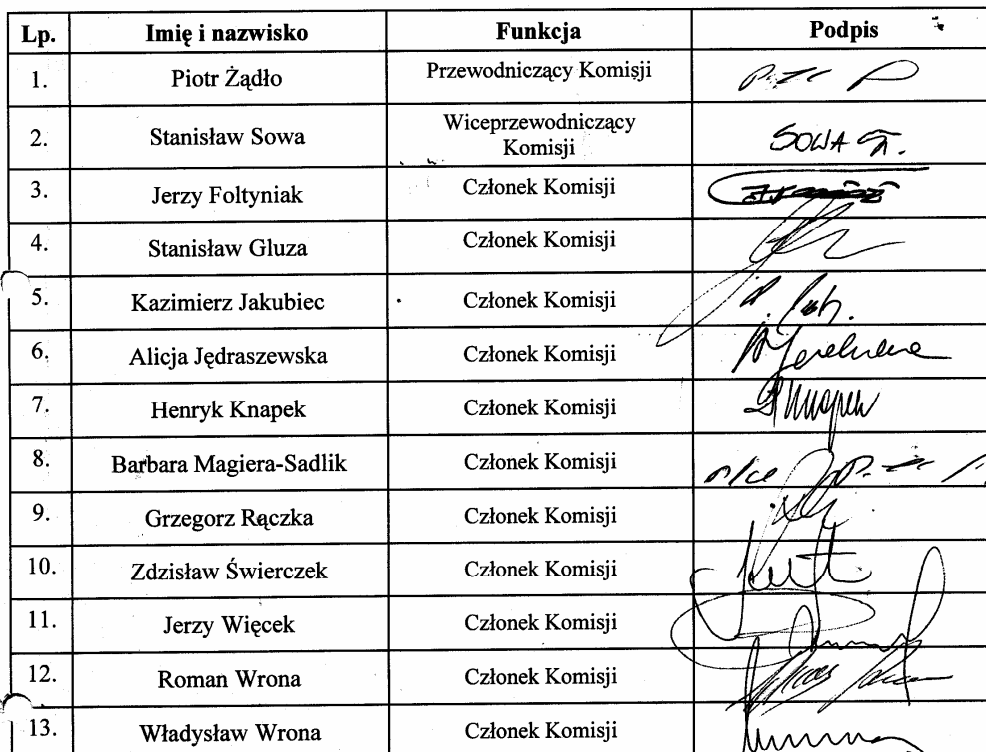 Lp. Imię i nazwisko Funkcja Podpis
1. Piotr Żądło Przewodniczący Komisji
2. Stanisław Sowa Wiceprzewodniczący
Komisji SOWA
3. Jerzy Foltyniak Członek Komisji
4. Stanisław Gluza Członek Komisji
5. Kazimierz Jakubiec Członek Komisji
6. Alicja Jędraszewska Członek Komisji
7. Henryk Knapek Członek Komisji
8. Barbara Magiera-Sadlik Członek Komisji
9. Grzegorz Rączka Członek Komisji
10. Zdzisław Świerczek Członek Komisji
11. Jerzy Więcek Członek Komisji
12. Roman Wrona Członek Komisji
13. Władysław Wrona Członek Komisji